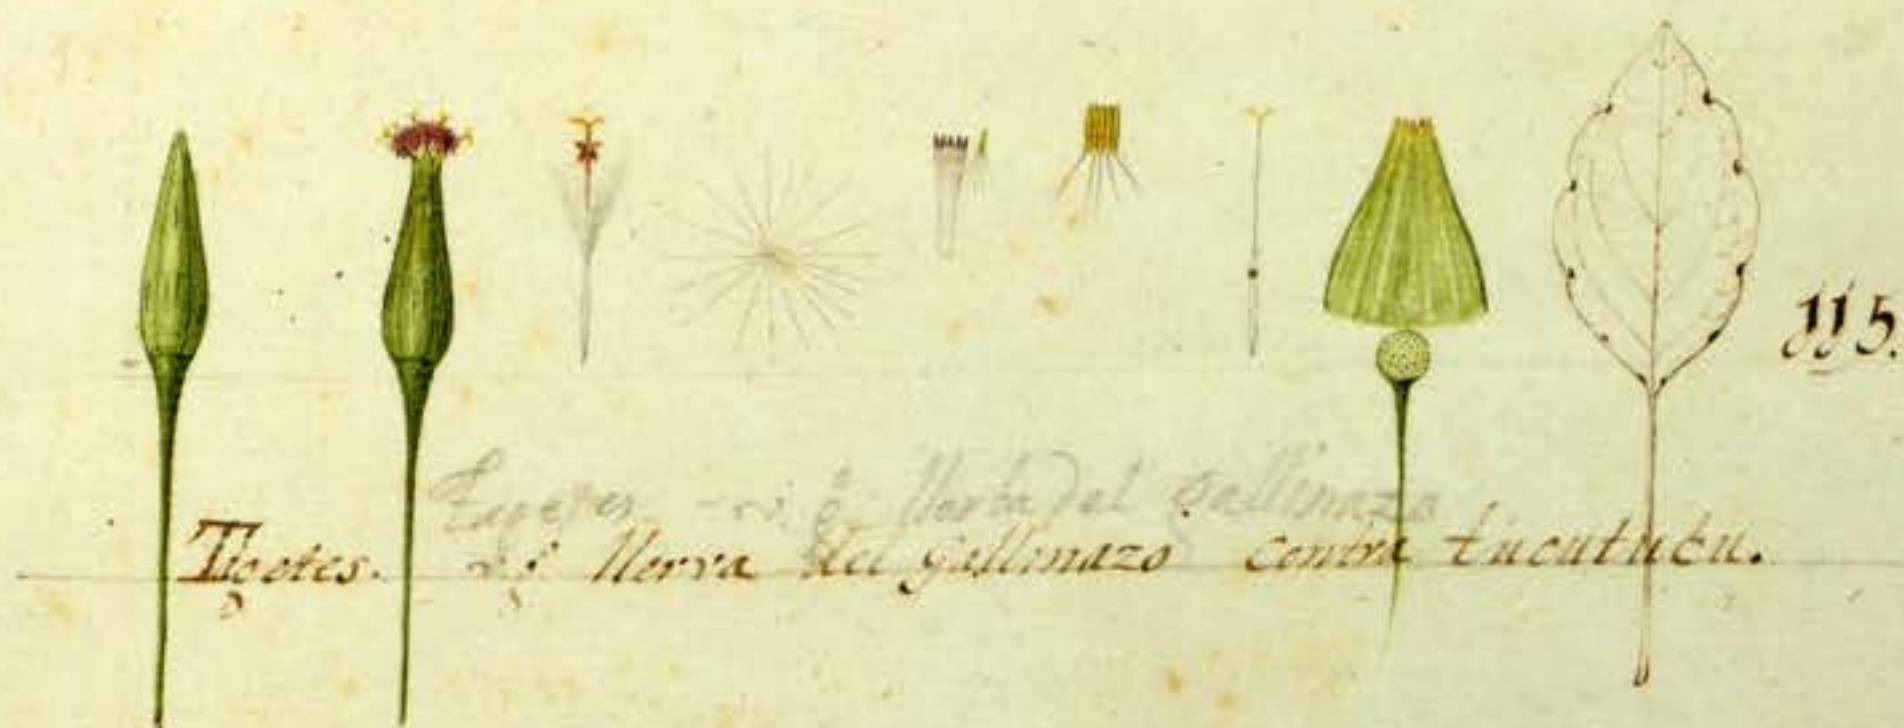 115.
Tagetes. Herba del gallinazo
Tgetes. Yerva del gallinazo contra tucututu.